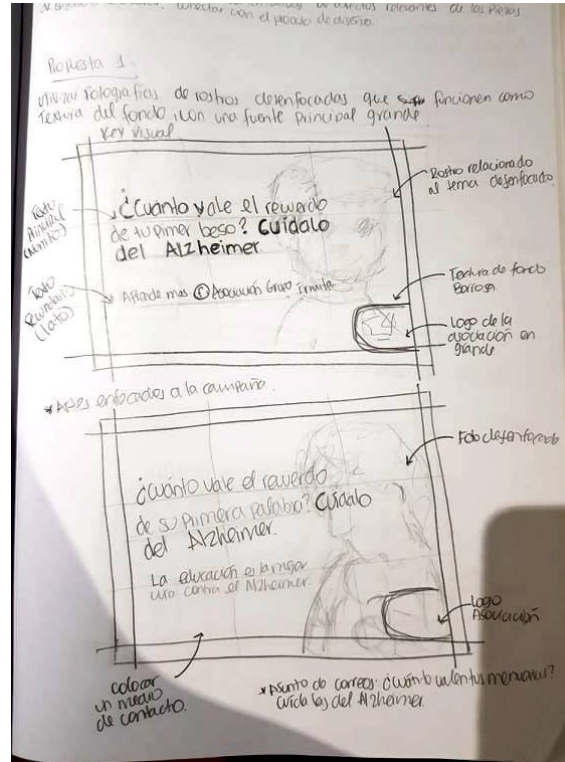 conectar con el proceso de diseño.
Propuesta 1
Utilizar fotografías de rostros desenfocadas que funcionen como
textura del fondo, con una fuente principal grande
Key Visual
¿Cuánto vale el recuerdo
de tu primer beso? Cuídalo
del Alzheimer.
Aprende mas Asociación Grupo
Texto
Principal
Texto
Secundario
(Lato)
Rostro relacionado
al tema desenfocado.
Textura de fondo
Borrosa
Logo de la
asociación en
grande
*Artes enfocados a la campaña.
¿Cuánto vale el recuerdo
de su primera palabra? Cuídalo
del Alzheimer.
La educación es la mejor
cura contra el Alzheimer.
Foto desenfocada
Logo
Asociación
colocar
un medio
de contacto.
*Asunto de correos: ¿Cuánto valen tus memorias?
Cuídalas del Alzheimer.